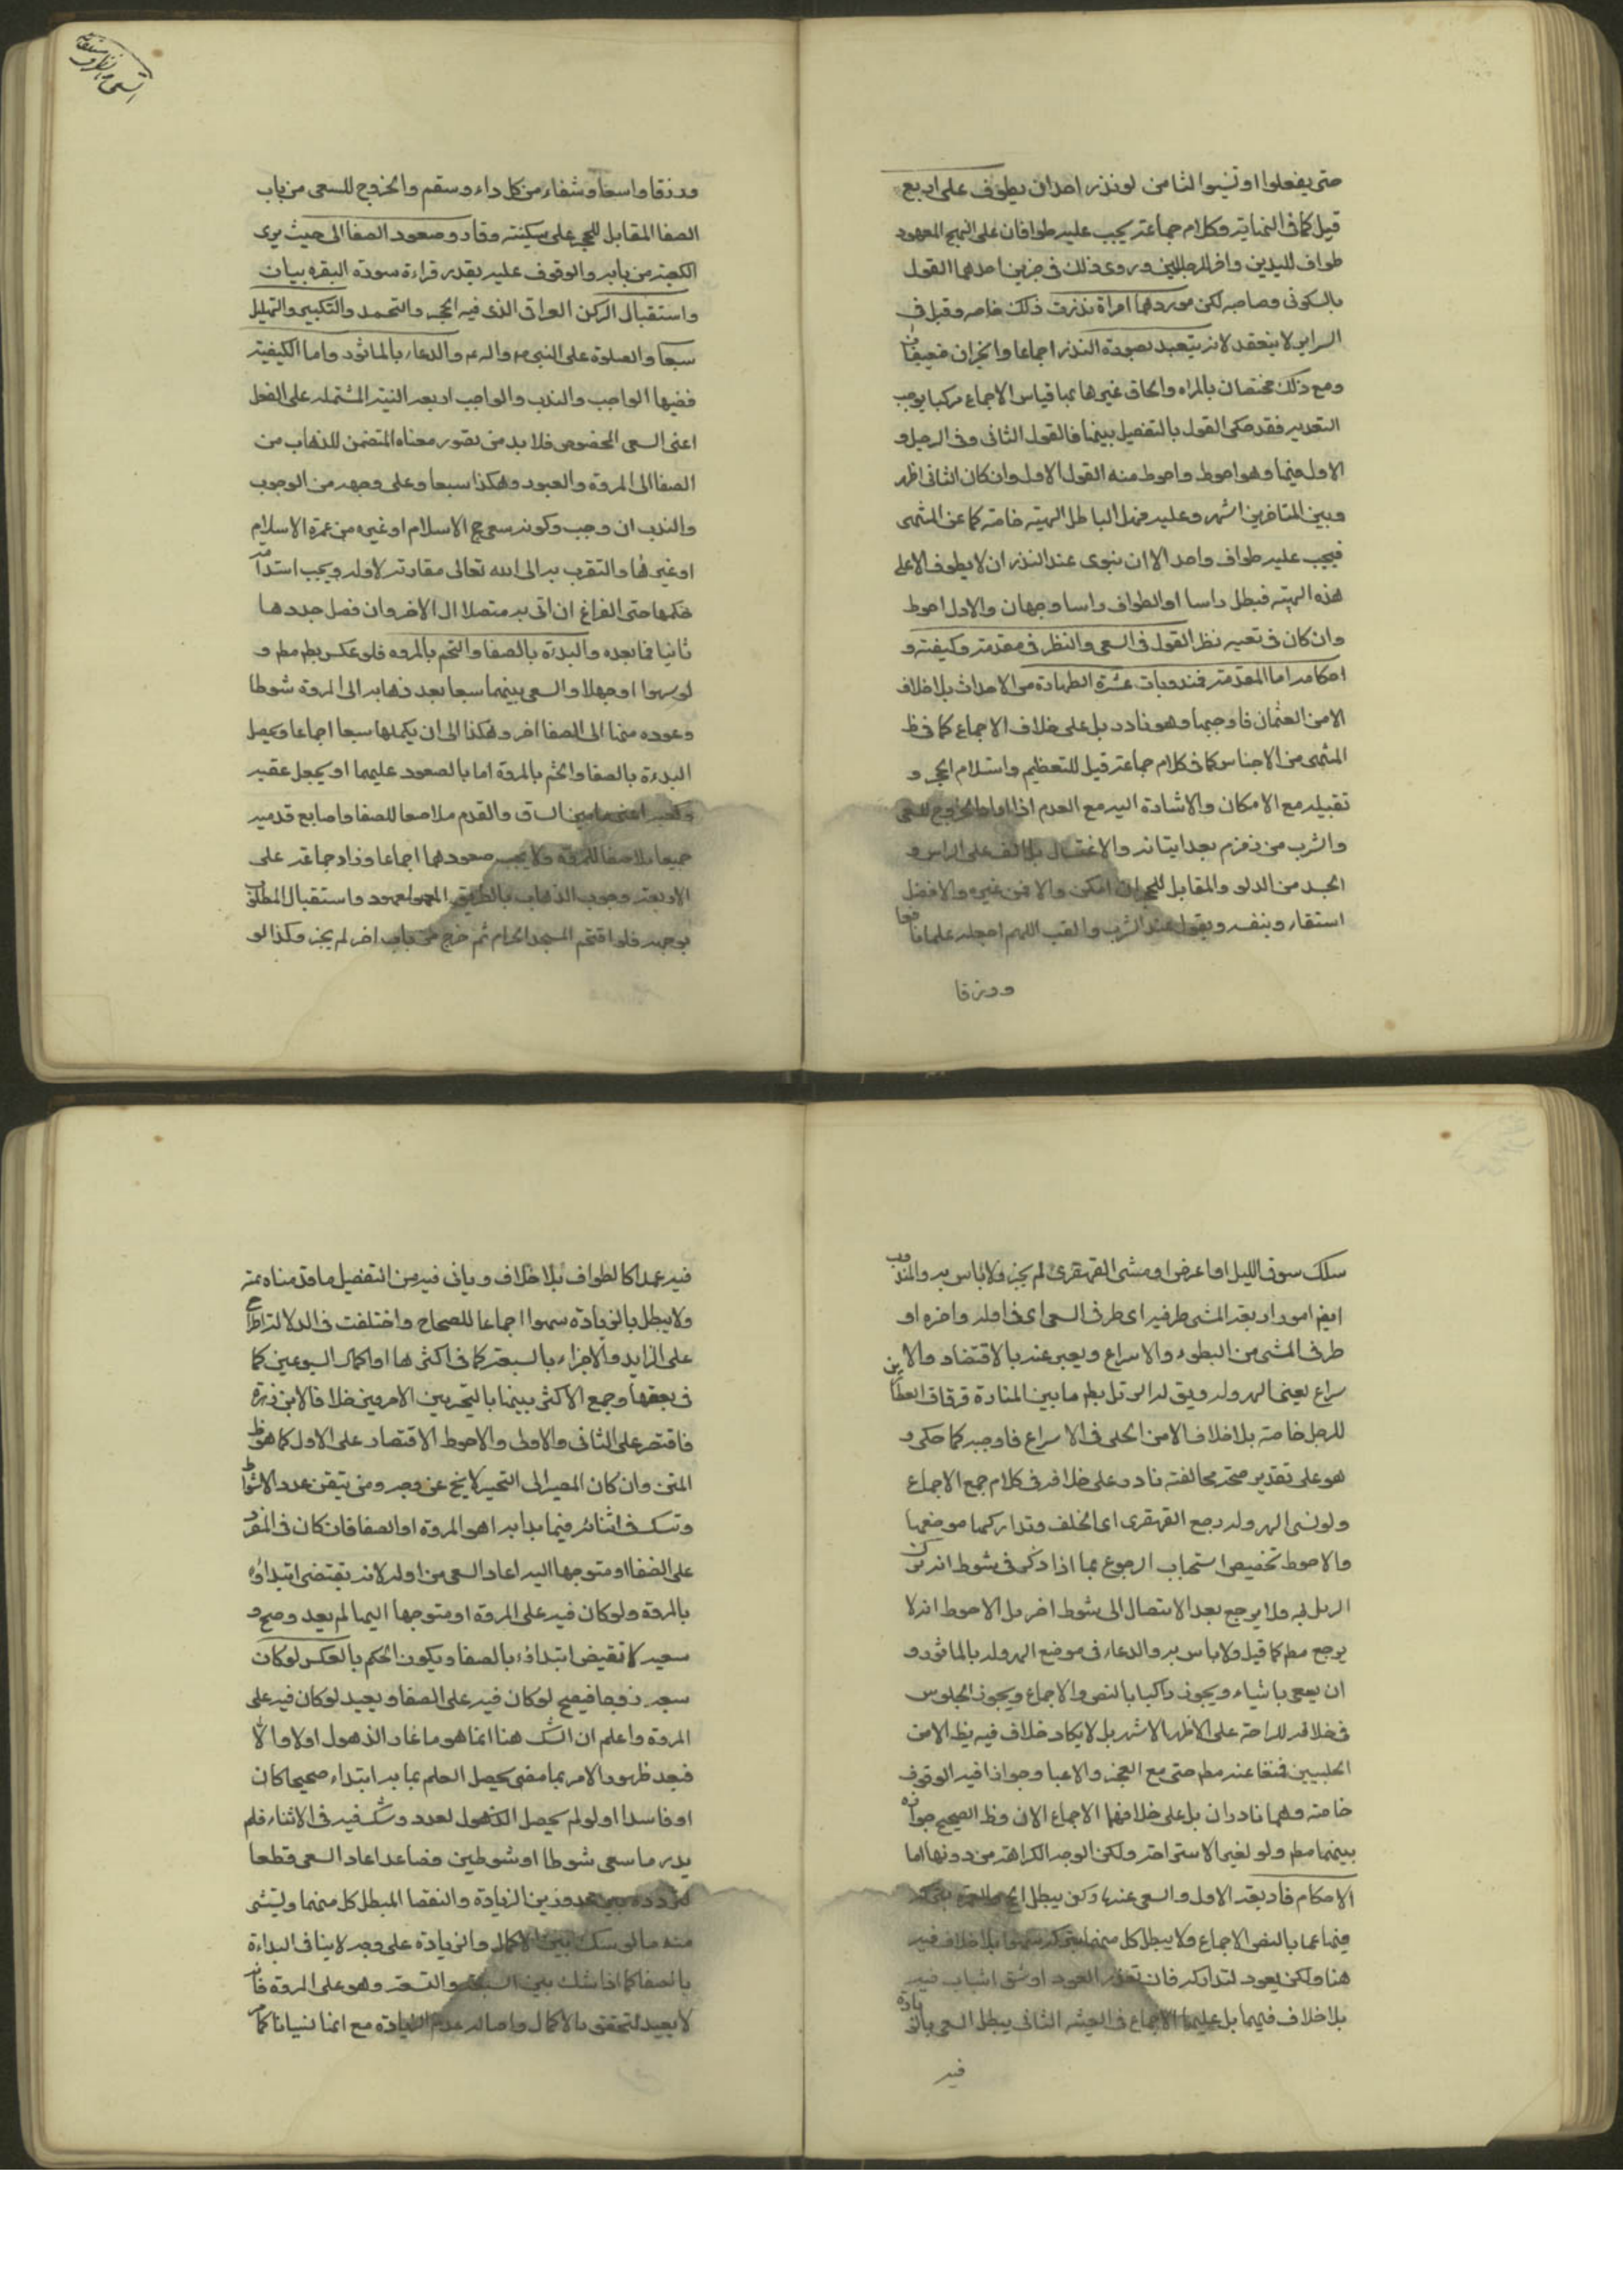 حتى يفعلوا او نسوا الثامن لو نذر احد ان يطوف على اربع
قيل كما في النهاية وكلام جماعة يجب عليه طوافان على النهج المعهود
طواف لليدين واخر للرجلين وروى ذلك في خبرين احدهما القول
بالسكوني وصاحبه لكن موردهما امراة نذرت ذلك خاصه وقيل في
السراير لا ينعقد لانه يتعبد بصورة النذر اجماعا والخبران ضعيفان
ومع ذلك مختصان بالمراه والحاق غيرها بها قياس الاجماع مركبا يوجب
التعديه فقد حكى القول بالتفصيل بينهما فالقول الثاني وفي الرجل و
الاول فيهما وهو احوط واحوط منه القول الاول وان كان الثاني اظهر
وبين المتاخرين اشهر وعليه فهل الباطل الهيئه خاصة كما عن المنتهى
فيجب عليه طواف واحد الا ان ينوى عند النذر ان لا يطوف الا على
هذه الهيئه فبطل راسا او الطواف راسا وجهان والاول احوط
وان كان في تعينه نظر القول في السعى والنظر في مقدمته وكيفيته و
احكامه اما المقدمة فمندوبات عشرة الطهارة من الاحداث بلا خلاف
الا من العمانى فاوجبها وهو نادر بل على خلاف الاجماع كما في ظ
المنتهى من الاجناس كما في كلام جماعة قيل للتعظيم واستلام الحجر و
تقبيله مع الامكان والاشارة اليه مع العدم اذا اراد الخروج للسعى
والشرب من زمزم بعد ايتانه والاغتسال بل الصب على الراس و
الجسد من الدلو والمقابل للحجر ان امكن والا فمن غيره والافضل
استقاء بنفسه ويقول عند الشرب والصب اللهم اجعله علما نافعا
ورزقا
ورزقا واسعا وشفاء من كل داء وسقم والخروج للسعى من باب
الصفا المقابل للحجر على سكينة ووقار وصعود الصفا الى حيث يرى
الكعبة من بابه والوقوف عليه بقدر قراءة سورة البقره بيان
واستقبال الركن العراقى الذى فيه الحجر والتحمد والتكبير والتهليل
سبعا والصلوة على النبي ص واله ع والدعاء بالماثور واما الكيفية
ففيها الواجب والندب والواجب اربعه النية المشتمله على الفعل
اعنى السعى المخصوص فلا بد من تصور معناه المتضمن للذهاب من
الصفا الى المروة والعود وهكذا سبعا وعلى وجهه من الوجوب
والندب ان وجب وكونه سعى حج الاسلام او غيره من عمرة الاسلام
او غيرها والتقرب به الى الله تعالى مقارنة لاوله ويجب استدامة
حكمها حتى الفراغ ان اتى به متصلا الى الاخر وان فصل جددها
ثانيا فما بعده والبدئة بالصفا والختم بالمروه فلو عكس بطل مطم و
لو سهوا او جهلا والسعى بينهما سبعا بعد ذهابه الى المروة شوطا
وعوده منها الى الصفا اخر وهكذا الى ان يكملها سبعا اجماعا ويحصل
البدءة بالصفا والختم بالمروة اما بالصعود عليهما او يجعل عقبه
وكعبه اعنى ما بين الساق والقدم ملاصقا للصفا واصابع قدميه
جميعا ملاصقا للمروة ولا يجب صعودهما اجماعا وزاد جماعة على
الاربعة وجوب الذهاب بالطريق المعهود واستقبال المطلوب
بوجهه فلو اقتحم المسجد الحرام ثم خرج من باب اخر لم يجز وكذا لو
سلك سوق الليل او اعرض او مشى القهقرى لم يجز ولا باس به والمندوب
ايضا امور اربعة المشى طرفيه اى طرفى السعى اى في اوله واخره او
طرفى المشى من البطوء والاسراع ويعبر عنه بالاقتصاد والا
سراع يعنى الهروله ويق له الرمل بطم ما بين المنارة وزقاق العطارين
للرجل خاصة بلا خلاف الا من الحلى في الاسراع فاوجبه كما حكى و
هو على تقدير صحته مخالفته نادر على خلافه في كلام جمع الاجماع
ولو نسى الهروله رجع القهقرى اى الخلف وتداركها موضعها
والاحوط تخصيص استحباب الرجوع بما اذا ذكر في شوط انه ترك
الرمل فيه ولا يرجع بعد الانتقال الى شوط اخر بل الاحوط انه لا
يرجع مطم كما قيل ولا باس به والدعاء في موضع الهروله بالماثور و
ان يسعى ماشياء ويجوز راكبا بالنص والاجماع ويجوز الجلوس
في خلاله للراحة على الاظهر الاشهر بل لا يكاد خلاف فيه يظ الا من
الحلبيين فمنعا عنه مطم حتى مع العجز والاعيا وجوازا فيه الوقوف
خاصة وهما نادران بل على خلافهما الاجماع الان وظ الصحيح جوازه
بينهما مطم ولو لغير الاستراحة ولكن الوجه الكراهة من دونها اما
الاحكام فاربعة الاول والسعى عندنا ركن يبطل الحج والعمرة بتركه
فيهما عمدا بالنص الاجماع ولا يبطل كل منهما بتركه سهوا بلا خلاف فيه
هنا ولكن يعود لتداركه فان تعذر العود او شق استناب فيه
بلا خلاف فيهما بل عليهما الاجماع في الغنيه الثانى يبطل السعى بالزيادة
فيه
فيه عمدا كالطواف بلا خلاف وياتى فيه من التفصيل ما قدمناه ثمة
ولا يبطل بالزيادة سهوا اجماعا للصحاح واختلفت في الدلالة اطراح
على الزايد والاجزاء بالسبعة كما في اكثرها او اكمال اسبوعين كما
في بعضها وجمع الاكثر بينهما بالتخير بين الامرين خلافا لابن زهرة
فاقتصر على الثانى والاولى والاحوط الاقتصار على الاول كما هو ظ
المتن وان كان المصير الى التخير لا يخ عن وجه ومن تيقن عدد الاشواط
وشك في اثنائه فيما بدا به اهو المروة او الصفا فان كان في المفرد
على الصفا او متوجها اليه اعاد السعى من اوله لانه يقتضى ابتداؤه
بالمروة ولو كان فيه على المروة او متوجها اليها لم يعد وصح و
سعيه لا تقيض ابتداؤه بالصفا ويكون الحكم بالعكس لو كان
سعيه زوجا فيصح لو كان فيه على الصفا ويعيد لو كان فيه على
المروة واعلم ان الشك هنا انما هو ما غاد الذهول اولا والا
فبعد ظهور الامر بما مضى يحصل العلم بما به ابتداء صحيحا كان
او فاسدا او لو لم يحصل الذهول لعدد وشك فيه في الاثناء فلم
يدر ما سعى شوطا او شوطين فصاعدا اعاد السعى قطعا
لتردده بين محذورين الزيادة والنقصا المبطل كل منهما ويستثنى
منه ما لو شك بين الاكمال والزيادة على وجه لا ينافى البداءة
بالصفا كما اذا شك بين السبعة والتسعة وهو على المروة فانه
لا يعيد لتحقق الاكمال واصالة عدم الزيادة مع انها نسيانا كما